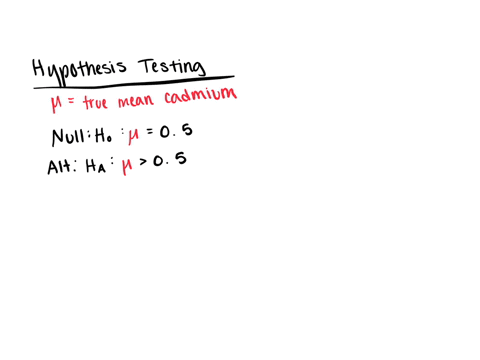 Hypothesis Testing
μ = true mean cadmium
Null: H₀ : μ = 0.5
Alt: Hᴀ : μ > 0.5